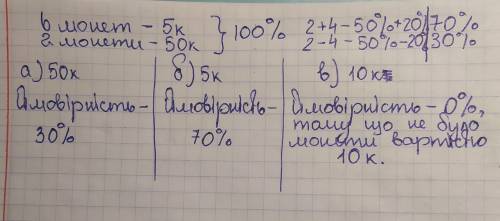 6 монет - 5к } 100%
2 монети - 50к
2+4-50%+20% 70%
2-4-50%-20% 30%
а) 50к
Ймовірність -
30%
б) 5к
Ймовірність -
70%
в) 10к
Ймовірність - 0%,
тому що не було
монети вартістю
10 к.